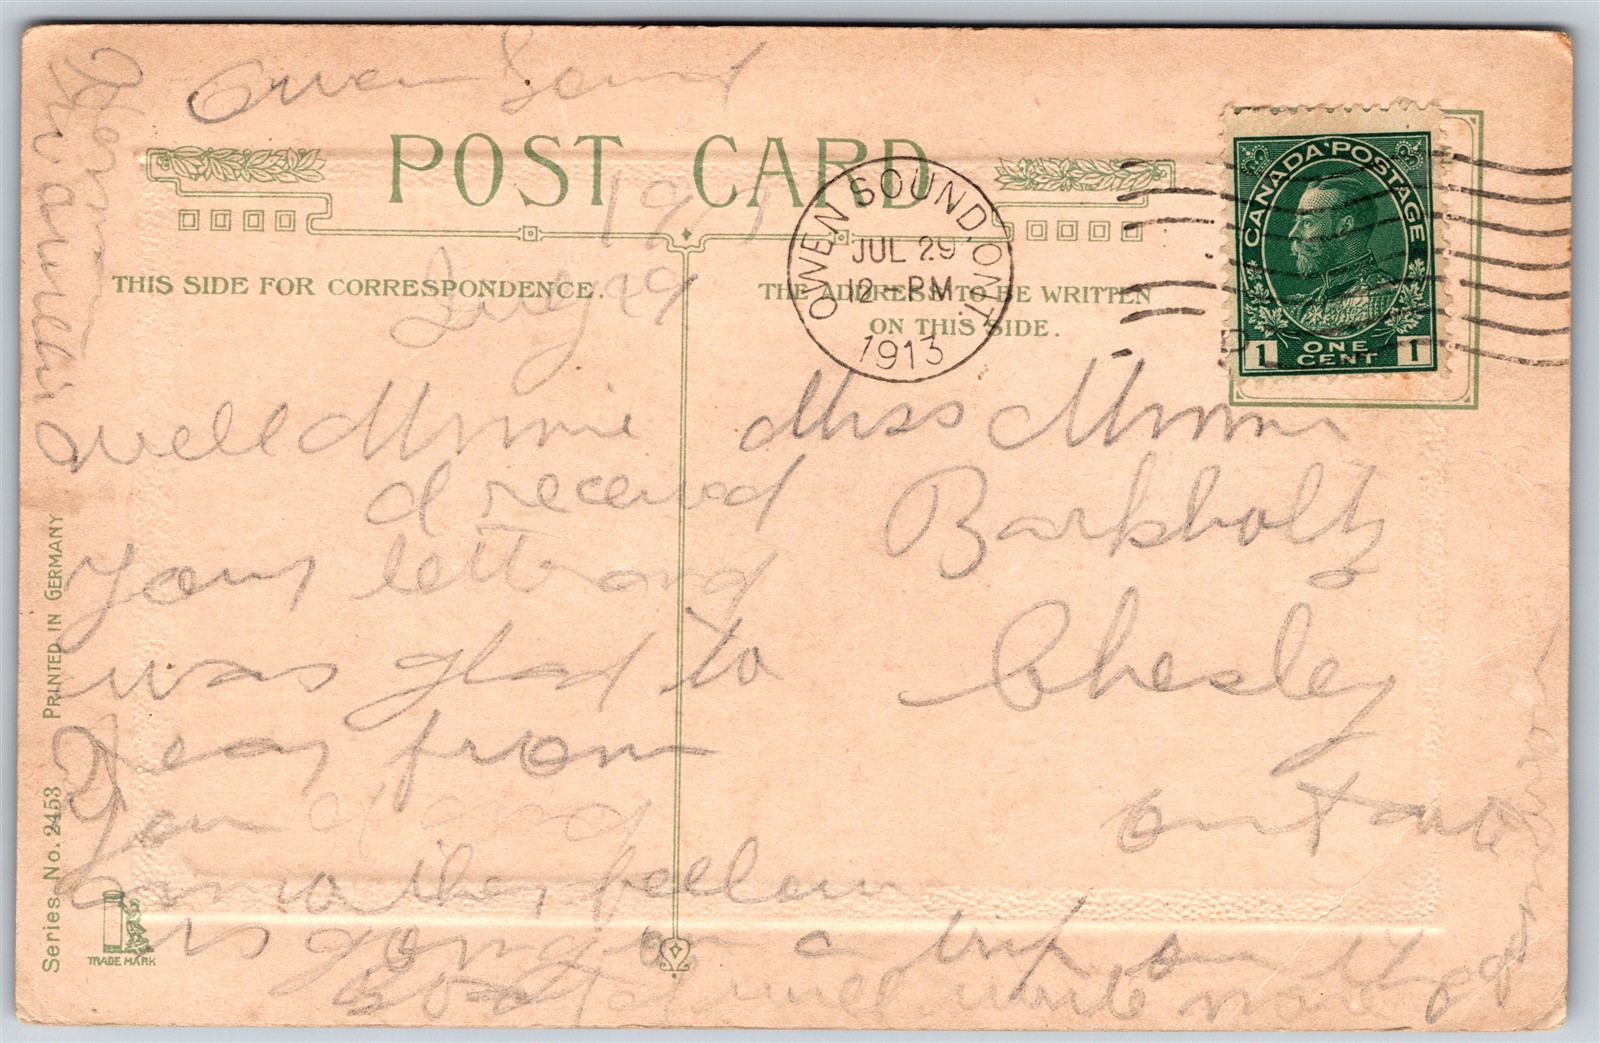 Owen Sound
POST CARD
1913
July 29
THIS SIDE FOR CORRESPONDENCE.
THE ADDRESS TO BE WRITTEN
ON THIS SIDE.
OWEN SOUND, ONT.
JUL 29
12-PM
1913
CANADA POSTAGE
1 ONE CENT 1
well Minnie
I received
your letter and
was glad to
hear from
you
fellow
is going on a trip on the
boat will write more
Miss Minnie
Barkholtz
Chesley
Ontario
Series No. 2453 PRINTED IN GERMANY
TRADE MARK